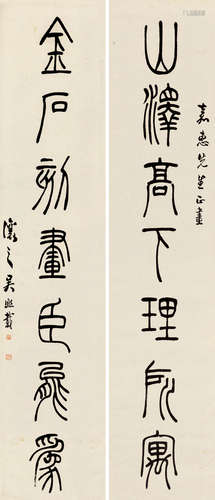 山澤高下理所寓
嘉惠先生正畫
金石刻畫臣能為
讓之吳熙載